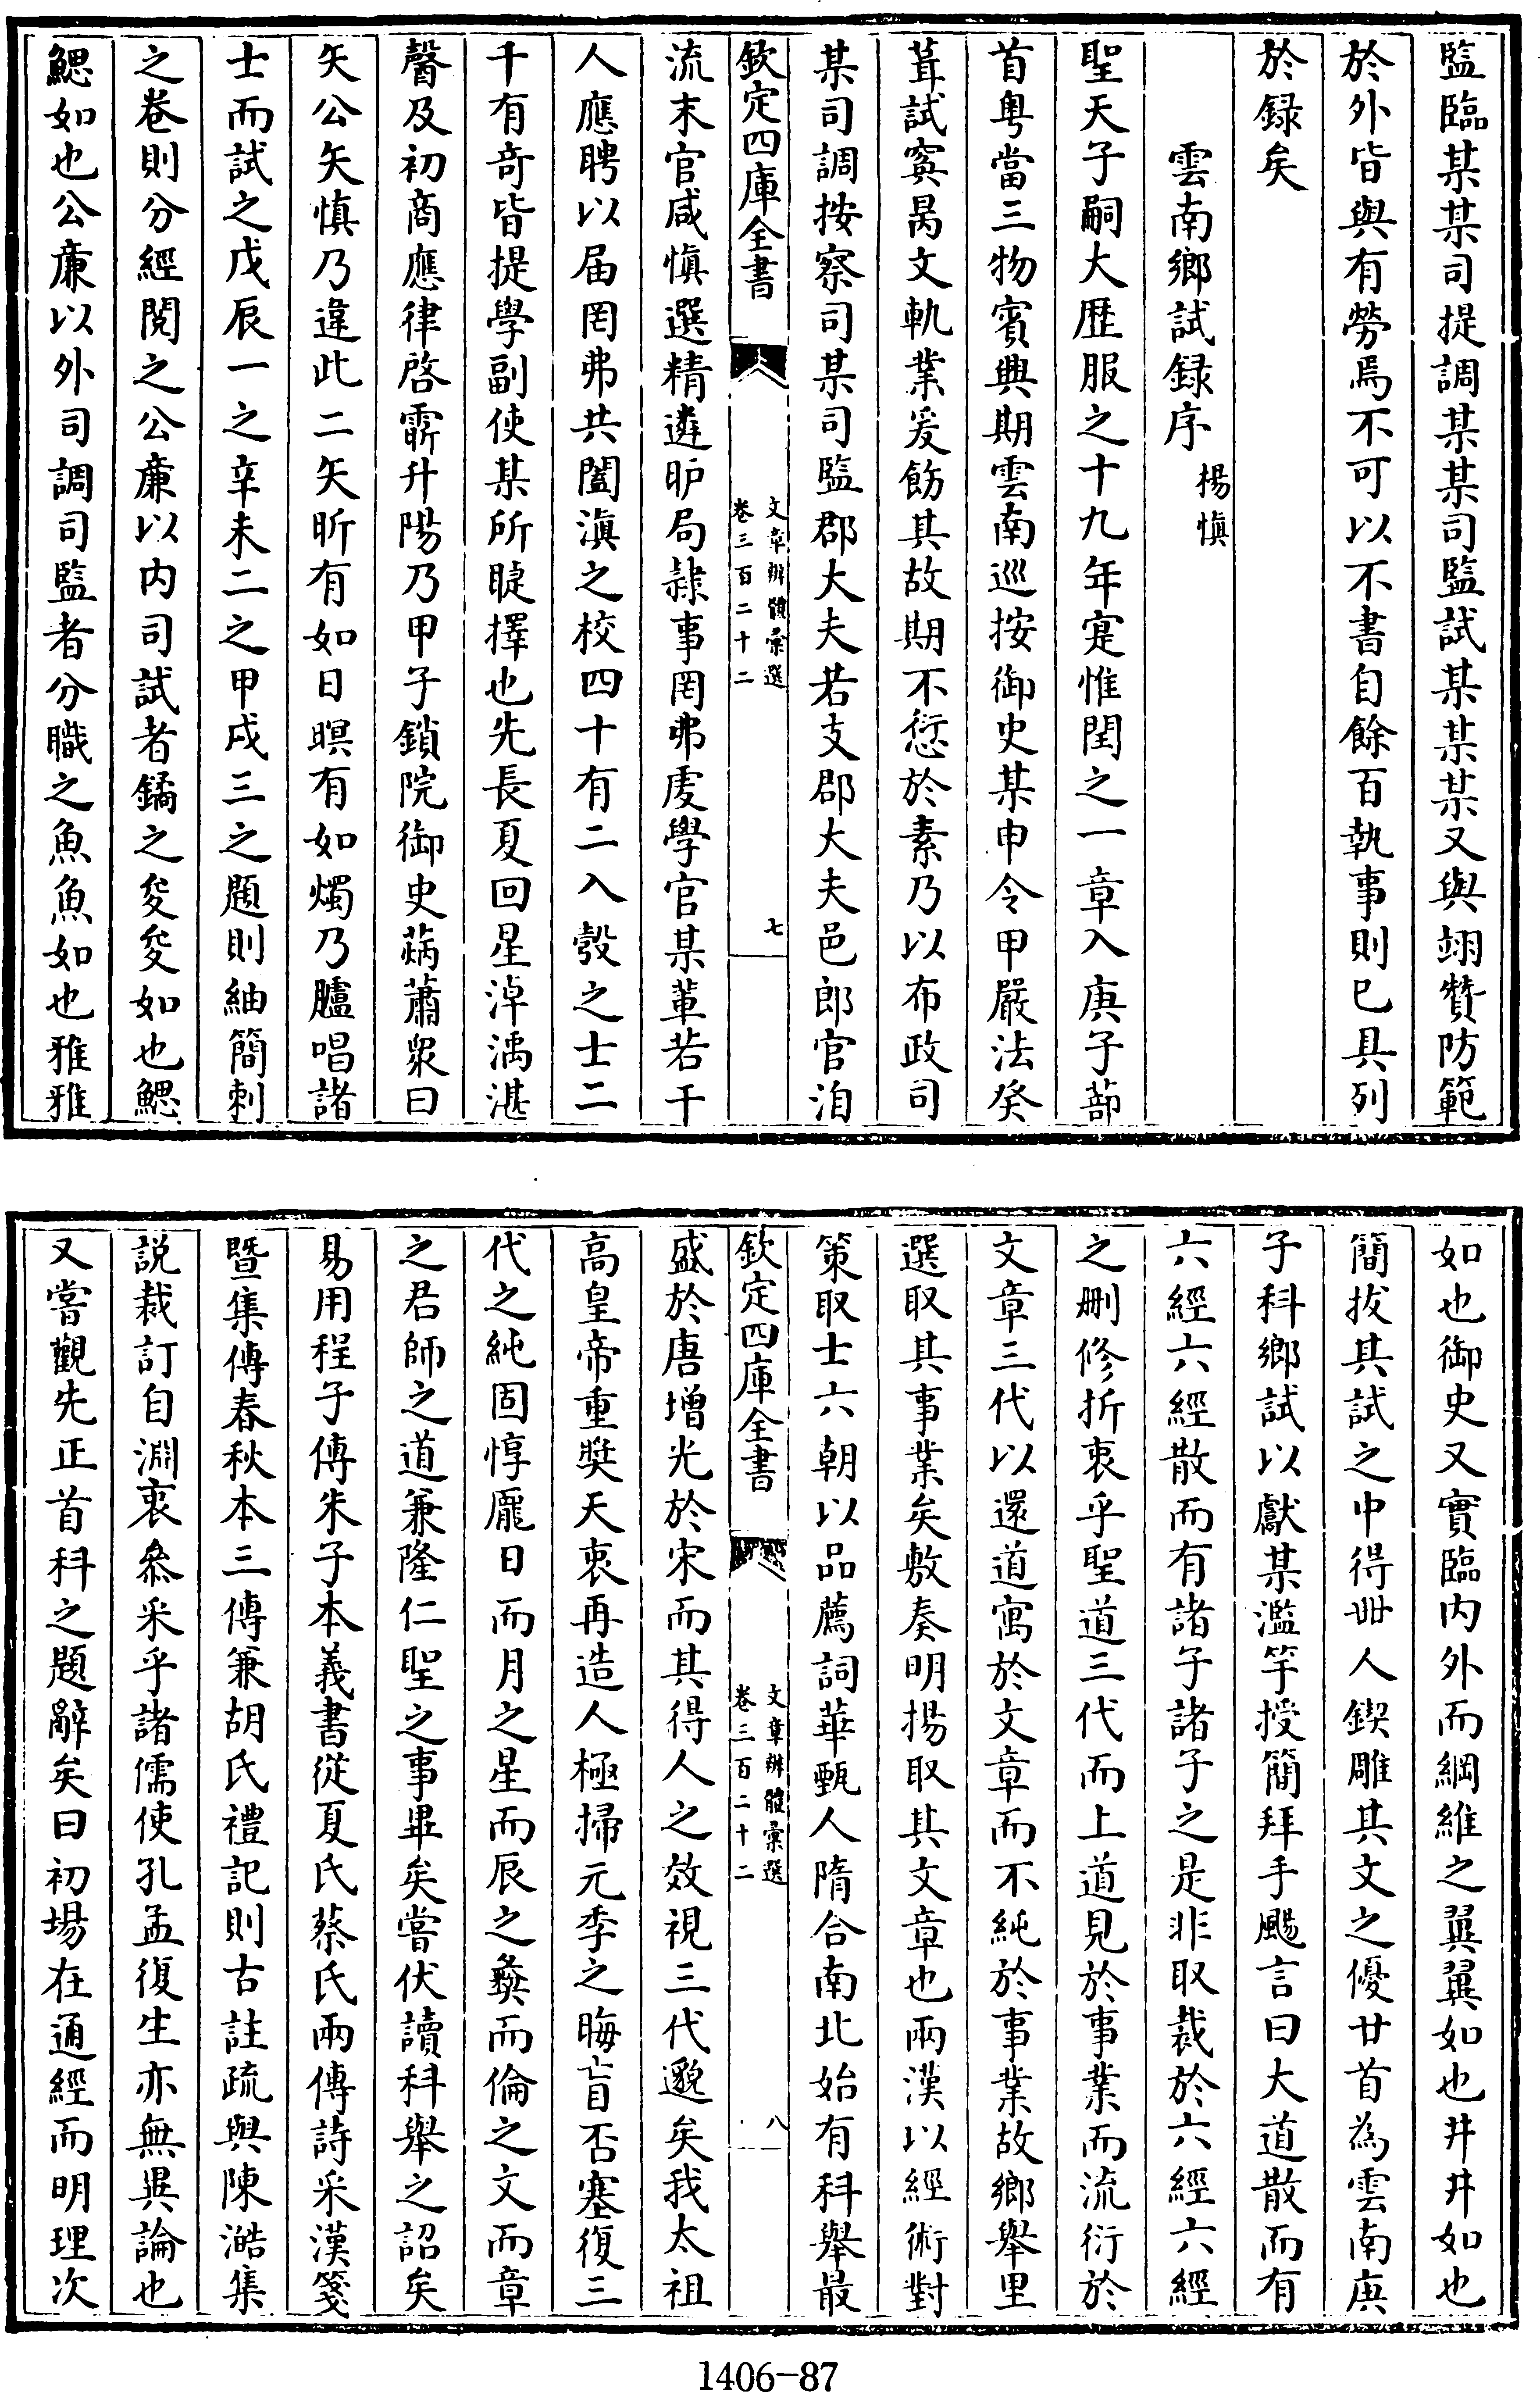 監臨某某司提調某某司監試某某某又與翊贊防範
於外皆與有勞焉不可以不書自餘百執事則已具列
於録矣
雲南鄉試録序 楊慎
聖天子嗣大歴服之十九年寔惟閏之一章入庚子蔀
首粵當三物賓興期雲南巡按御史某申令甲嚴法癸
葺試寘昺文軌業爰飭其故期不愆於素乃以布政司
某司調按察司某司監郡大夫若支郡大夫邑郎官洎
欽定四庫全書
文章辨體彙選
卷三百二十二
七
流末官咸慎選精遴昈局隷事罔弗虔學官某軰若干
人應聘以届罔弗共闔滇之校四十有二入彀之士二
千有竒皆提學副使某所睫擇也先長夏回星淖濿湛
瞖及初商應律啓霽升陽乃甲子鎖院御史蒳蕭衆曰
矢公矢慎乃違此二矢昕有如日暝有如燭乃臚唱諸
士而試之戊辰一之辛未二之甲戌三之題則紬簡刺
之卷則分經閱之公廉以内司試者鐍之夋夋如也鰓
鰓如也公廉以外司調司監者分職之魚魚如也雅雅
如也御史又實臨内外而綱維之翼翼如也井井如也
簡拔其試之中得卌人鍥雕其文之優廿首為雲南庚
子科鄉試以獻某濫竽授簡拜手颺言曰大道散而有
六經六經散而有諸子諸子之是非取裁於六經六經
之刪修折衷乎聖道三代而上道見於事業而流衍於
文章三代以還道寓於文章而不純於事業故鄉舉里
選取其事業矣敷奏明揚取其文章也兩漢以經術對
策取士六朝以品薦詞華甄人隋合南北始有科舉最
欽定四庫全書
文章辨體彙選
卷三百二十二
八
盛於唐增光於宋而其得人之效視三代邈矣我太祖
高皇帝重奬天衷再造人極掃元季之晦盲否塞復三
代之純固惇龐日而月之星而辰之彝而倫之文而章
之君師之道兼隆仁聖之事畢矣嘗伏讀科舉之詔矣
易用程子傳朱子本義書從夏氏蔡氏兩傳詩采漢箋
暨集傳春秋本三傳兼胡氏禮記則古註疏與陳澔集
説裁訂自淵衷叅采乎諸儒使孔孟復生亦無異論也
又嘗觀先正首科之題辭矣曰初場在通經而明理次
1406-87